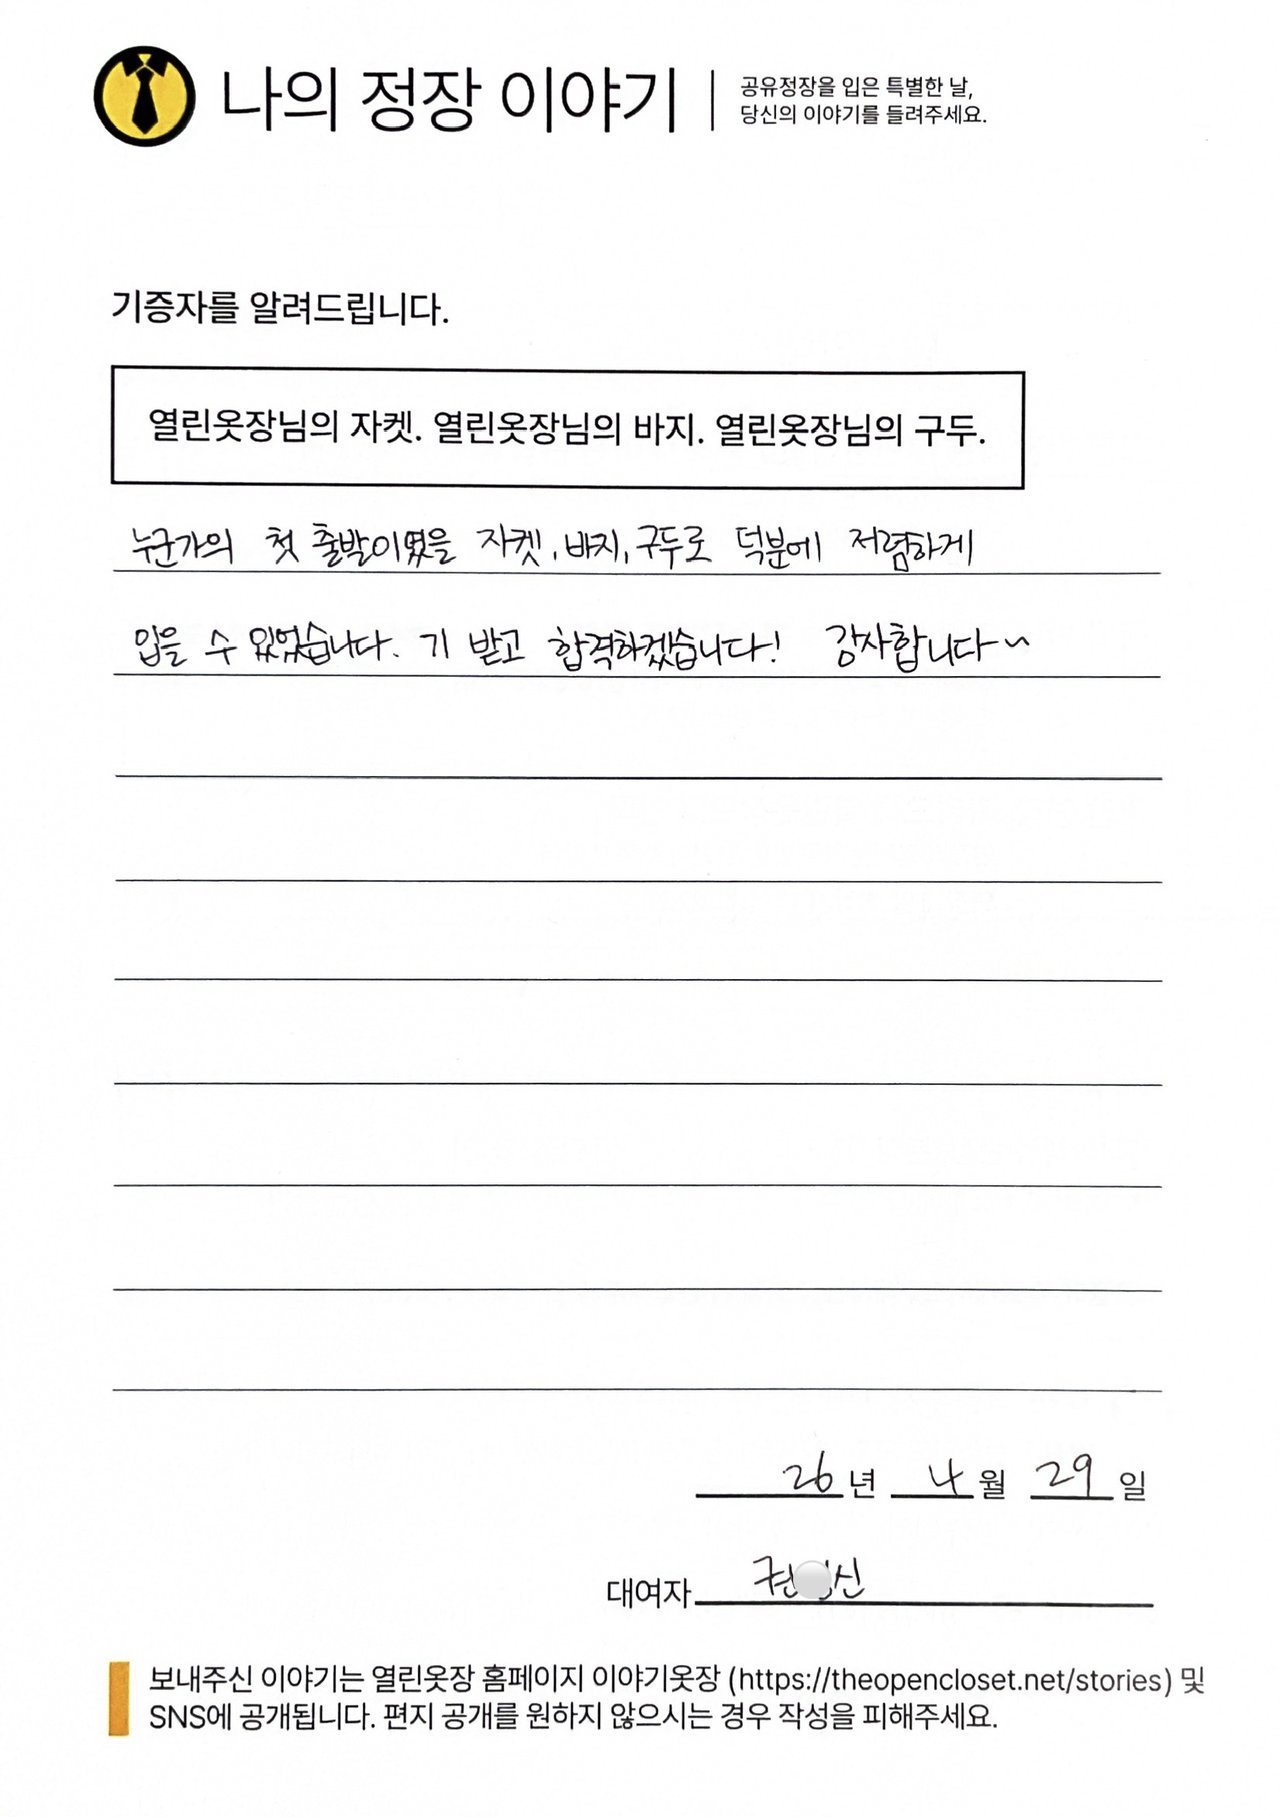 나의 정장 이야기
공유정장을 입은 특별한 날,
당신의 이야기를 들려주세요.
기증자를 알려드립니다.
열린옷장님의 자켓. 열린옷장님의 바지. 열린옷장님의 구두.
누군가의 첫 출발이였을 자켓, 바지, 구두로 덕분에 저렴하게
입을 수 있었습니다. 기 받고 합격하겠습니다! 감사합니다~
26년 4월 29일
대여자
보내주신 이야기는 열린옷장 홈페이지 이야기옷장 (https://theopencloset.net/stories) 및
SNS에 공개됩니다. 편지 공개를 원하지 않으시는 경우 작성을 피해주세요.